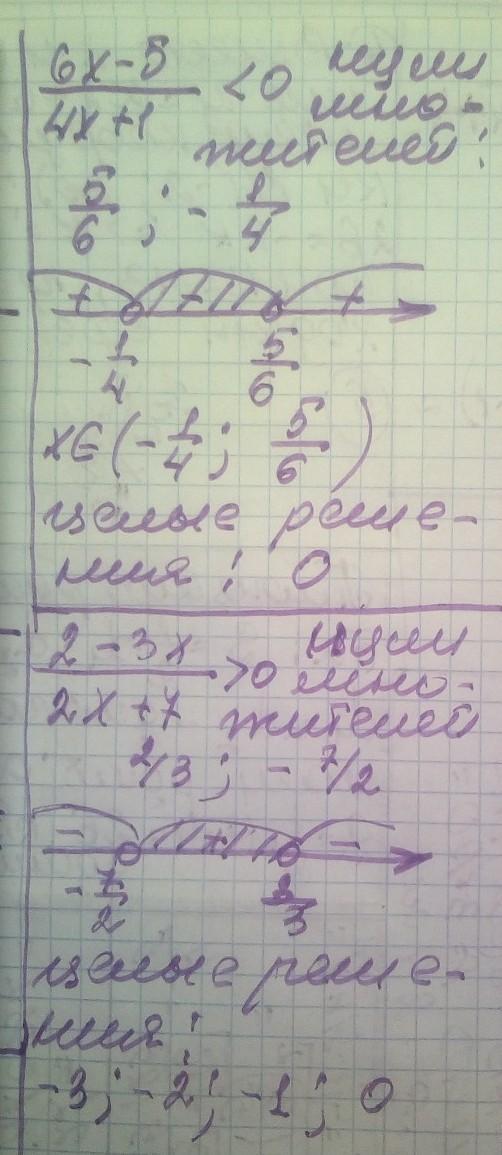 6x-5 / 4x+1 <0 нули
мно-
жителей:
5/6 ; - 1/4
+ + +
- 1/4 5/6
x∈(-1/4; 5/6)
целые реше-
ния: 0
2-3x / 2x+7 >0 нули
мно-
жителей
2/3; - 7/2
- + -
- 7/2 2/3
целые реше-
ния:
-3; -2; -1; 0